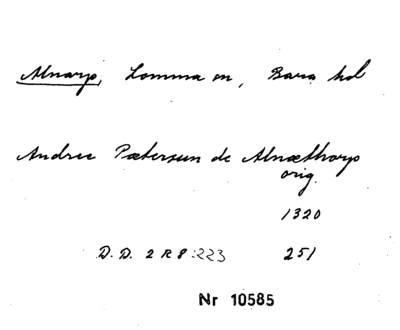 Alnarp, Lomma sn, Bara hd
Andree Pætersun de Alnæthorp
orig.
1320
D. D. 2 R 8:223 251
Nr 10585